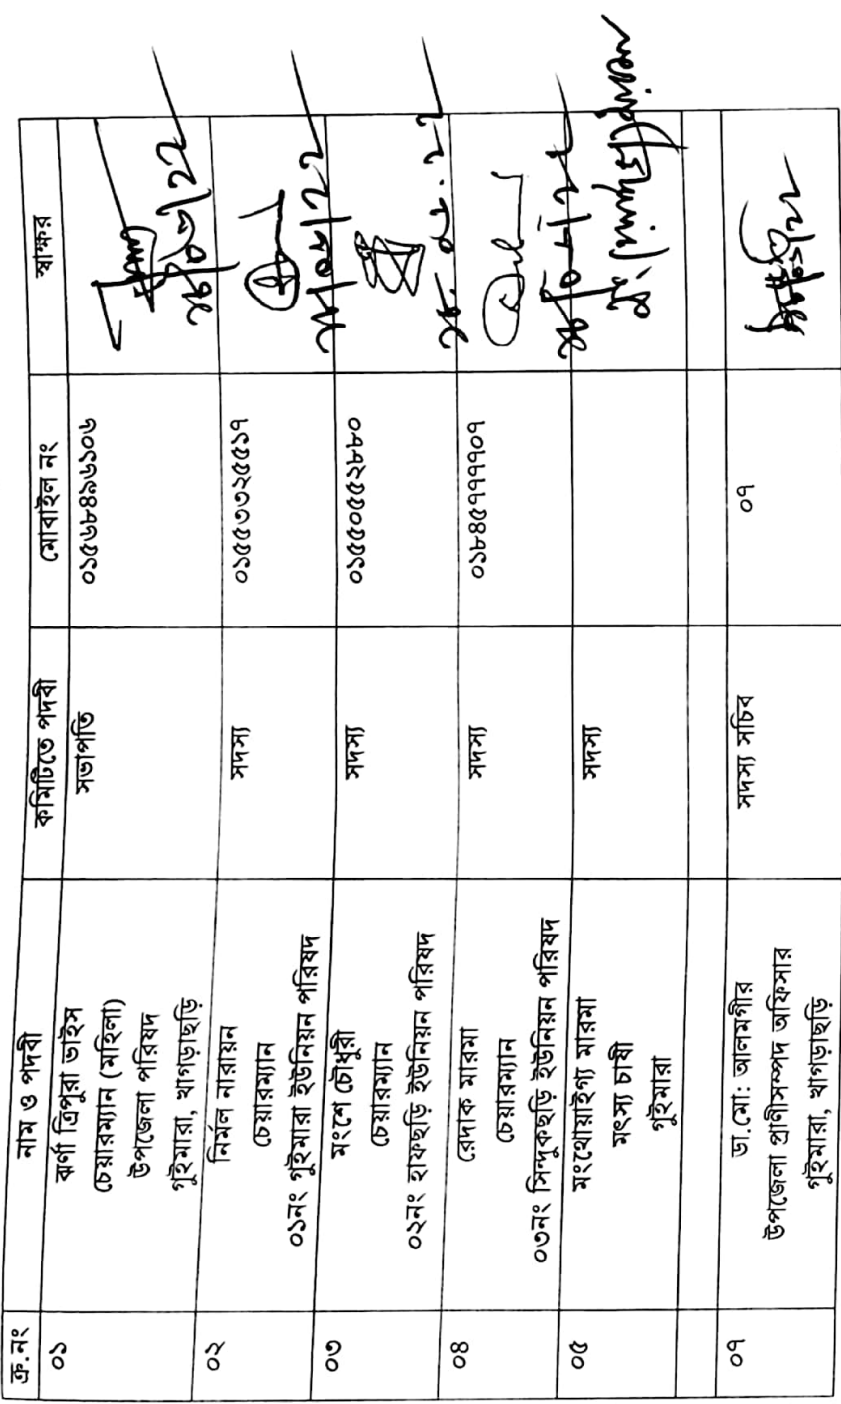 ক্র.নং
নাম ও পদবী
কমিটিতে পদবী
মোবাইল নং
স্বাক্ষর
০১
ঝর্ণা ত্রিপুরা ভাইস
চেয়ারম্যান (মহিলা)
উপজেলা পরিষদ
গুইমারা, খাগড়াছড়ি
সভাপতি
০১৫৬৮৪৯৬১০৬
০২
নির্মল নারায়ন
চেয়ারম্যান
০১নং গুইমারা ইউনিয়ন পরিষদ
সদস্য
০১৫৫৩৩২৫৫১৭
০৩
মংশে চৌধুরী
চেয়ারম্যান
০২নং হাফছড়ি ইউনিয়ন পরিষদ
সদস্য
০১৫৫০৫৫২৮৮০
০৪
রেদাক মারমা
চেয়ারম্যান
০৩নং সিন্দুকছড়ি ইউনিয়ন পরিষদ
সদস্য
০১৮৪৫৭৭৭৭০৭
০৫
মংথোয়াইগ্য মারমা
মৎস্য চাষী
গুইমারা
সদস্য
০৭
ডা.মো: আলমগীর
উপজেলা প্রাণীসম্পদ অফিসার
গুইমারা, খাগড়াছড়ি
সদস্য সচিব
০৭